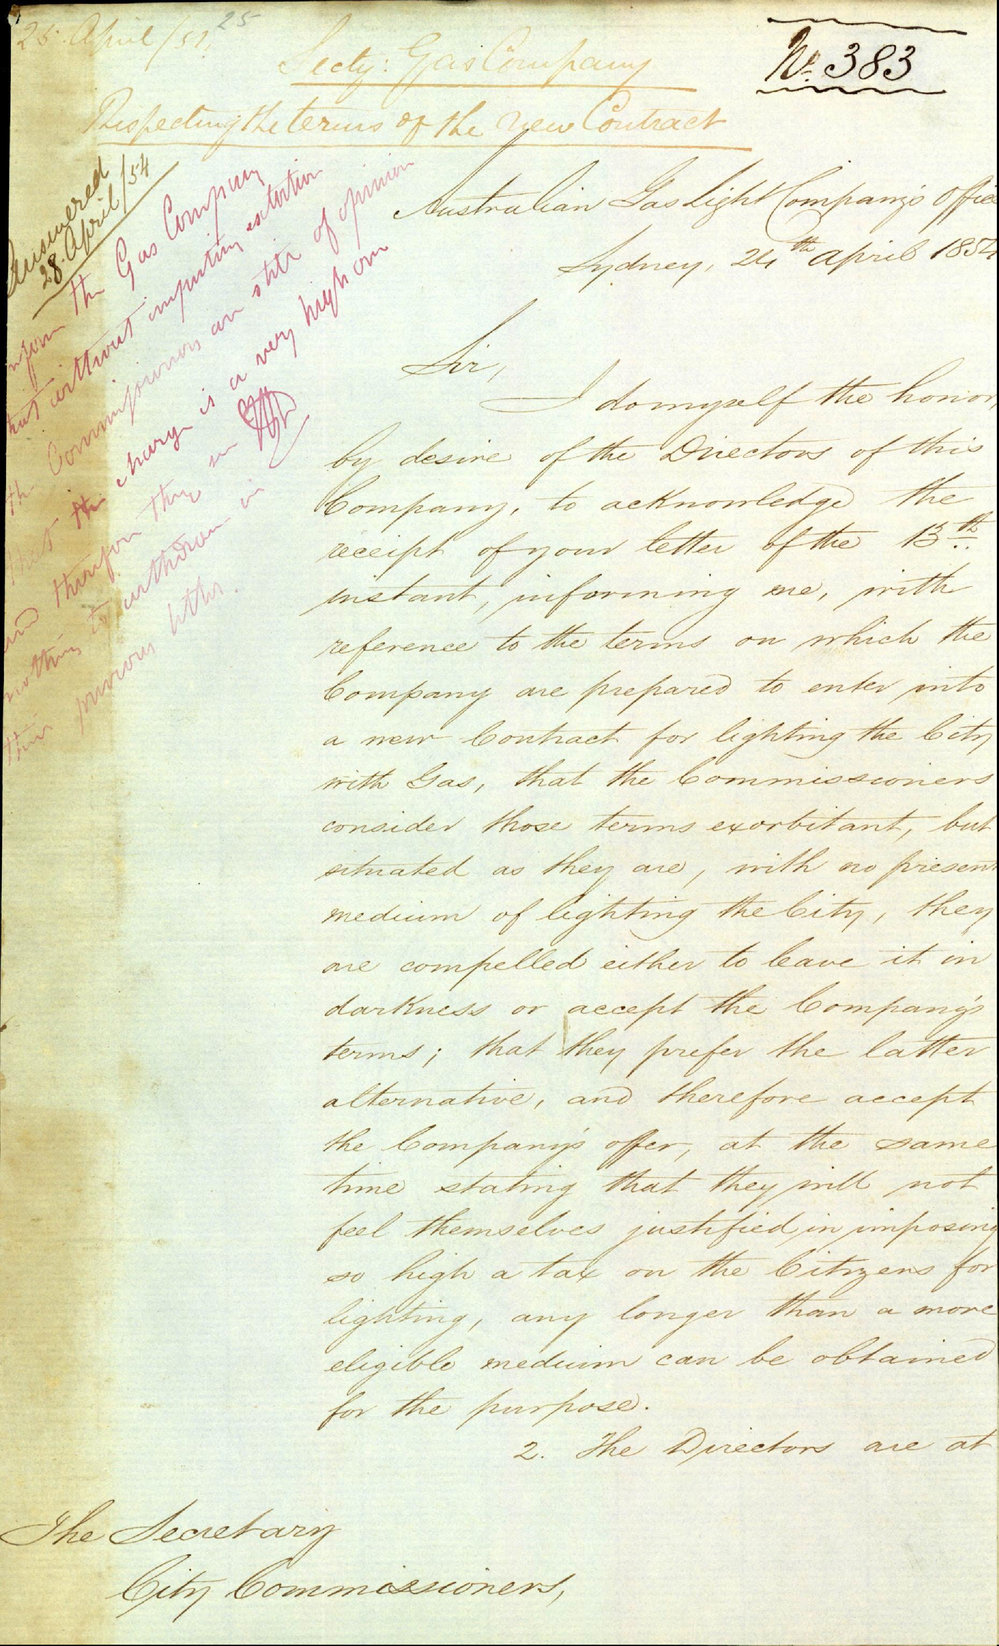 25 April /54. 25
Nº 383
Secty: Gas Company
Respecting the terms of the new Contract
Answered
28 April /54
inform the Gas Company
that without imputing extortion
the Commissioners are still of opinion
that the charge is a very high one
and therefore they see
nothing to withdraw in
their previous letter
Australian Gas Light Company's Office
Sydney, 24th April 1854
Sir,
I do myself the honor,
by desire of the Directors of this
Company, to acknowledge the
receipt of your letter of the 13th
instant, informing me, with
reference to the terms on which the
Company are prepared to enter into
a new Contract for lighting the City
with Gas, that the Commissioners
consider those terms exorbitant, but
situated as they are, with no present
medium of lighting the City, they
are compelled either to leave it in
darkness or accept the Company's
terms; that they prefer the latter
alternative, and therefore accept
the Company's offer, at the same
time stating that they will not
feel themselves justified in imposing
so high a tax on the Citizens for
lighting, any longer than a more
eligible medium can be obtained
for the purpose.
2. The Directors are at
The Secretary
City Commissioners,